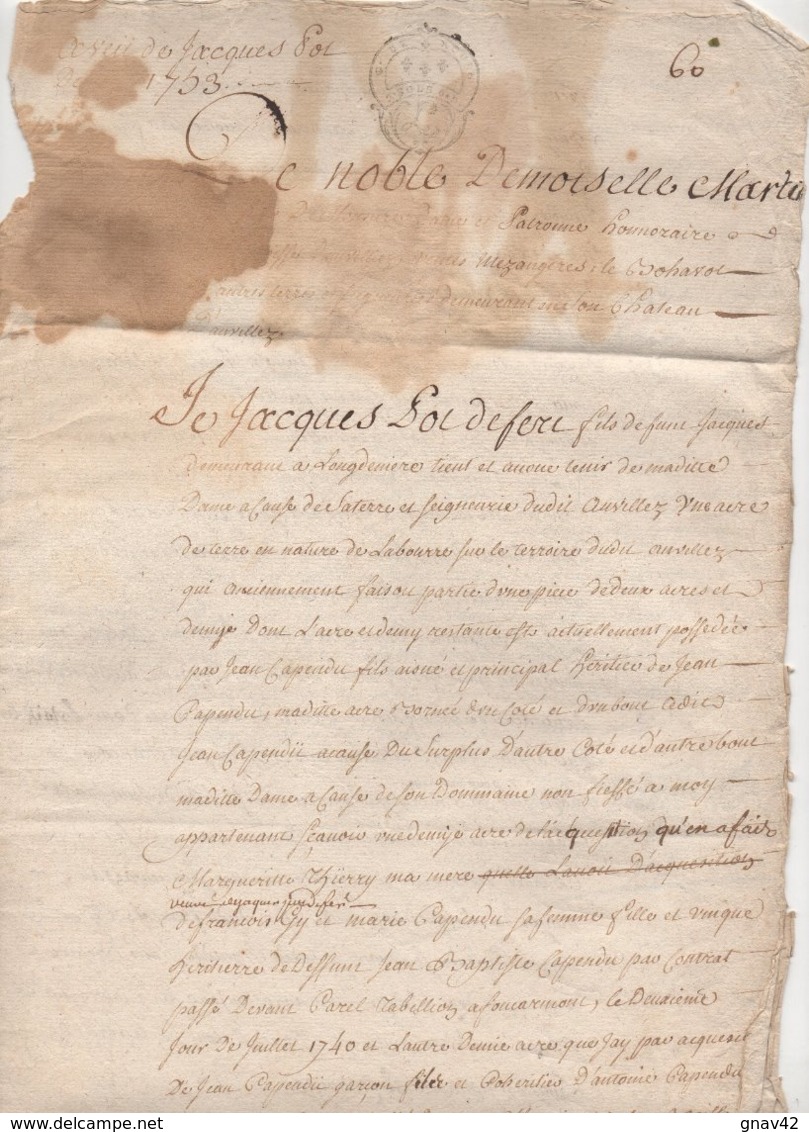 aveü de Jacques Pot
1753
60
noble Demoiselle Marte
Dame et Patronne honnoraire
Mezangeres le Bohavot
autres terres et demeurant en son Chateau
D'auvillez
Je Jacques Pot defere fils de funt Jacques
demeurant a Longdeniere tient et avoue tenir de maditte
Dame a cause de Saterre et Seigneurie dudit auvillez Une acre
de terre en nature de Labourre sur le terroire dudit auvillez
qui anciennement faisoit partie d'une piece de deux acres et
demye Dont L'acre et demy restante est actuellement possedée
par Jean Capendu fils aisné et principal heritier de Jean
Capendu, maditte acre Bornée d'un Coté et d'un bout audit
Jean Capendü acause Du Surplus D'autre Coté et d'autre bout
maditte Dame a Cause de son Dommaine non fieffé a moy
appartenant Sçavoir une demye acre de l'acquestion qu'en a fait
Margueritte Thierry ma mere quelle L'avoit D'acquesition
veuve de Jacques Pot defere
de francois Gy et marie Capendu sa femme fille et unique
heritierre de Deffunt Jean Baptiste Capendu par Contrat
passé Devant Carel Tabellion a foucarmont, le Deuxieme
Jour De Juillet 1740 et Lautre Demie acre que Jay par acquest
De Jean Capendu garçon et Coheritier D'antoine Capendu
gnav42